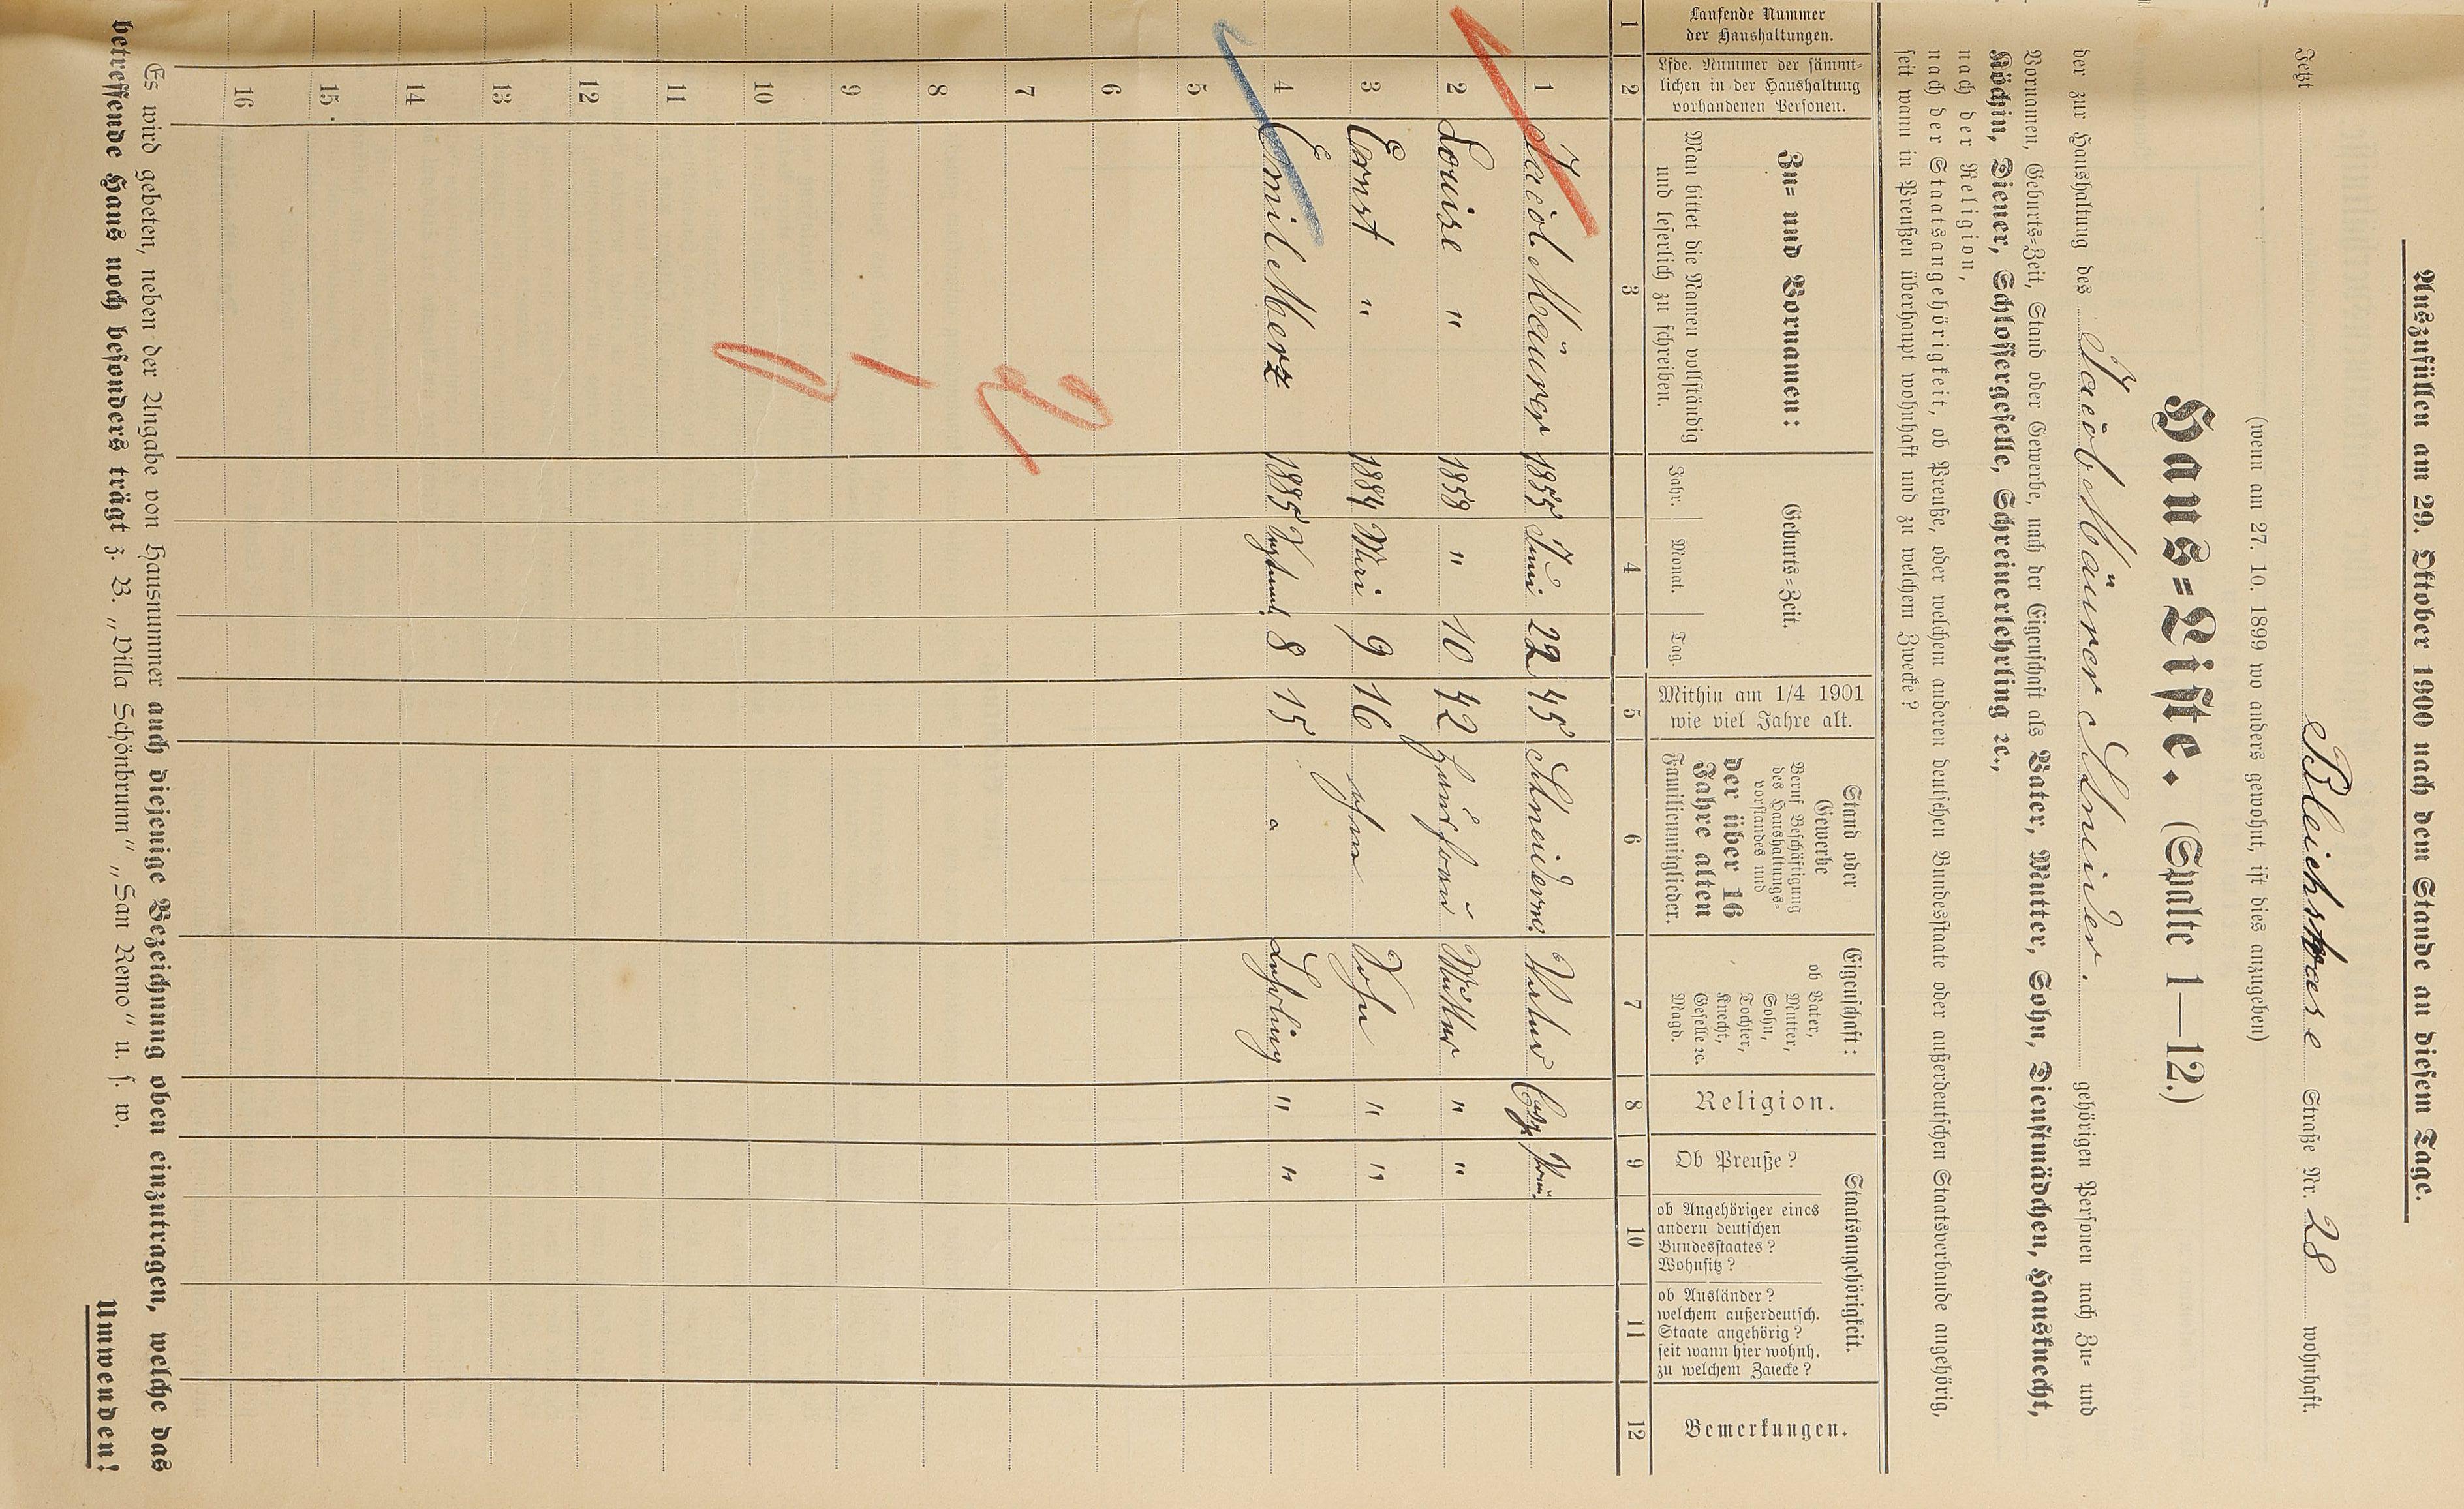 Auszufüllen am 29. Oktober 1900 nach dem Stande an diesem Tage.
Jetzt Bleichstrase Straße Nr. 28 wohnhaft.
(wenn am 27. 10. 1899 wo anders gewohnt, ist dies anzugeben)
Haus=Liste. (Spalte 1—12.)
der zur Haushaltung des Jacob Mäurer gehörigen Personen nach Zu= und
Vornamen, Geburts=Zeit, Stand oder Gewerbe, nach der Eigenschaft als Vater, Mutter, Sohn, Dienstmädchen, Hausknecht,
Köchin, Diener, Schlossergeselle, Schreinerlehrling ꝛc.,
nach der Religion,
nach der Staatsangehörigkeit, ob Preuße, oder welchem anderen deutschen Bundesstaate oder außerdeutschen Staatsverbande angehörig,
seit wann in Preußen überhaupt wohnhaft und zu welchem Zwecke?
Laufende Nummer
der Haushaltungen.
Lfde. Nummer der sämmt=
lichen in der Haushaltung
vorhandenen Personen.
Zu= und Vornamen:
Man bittet die Namen vollständig
und leserlich zu schreiben.
Geburts=Zeit.
Jahr. Monat. Tag.
Mithin am 1/4 1901
wie viel Jahre alt.
Stand oder
Gewerbe
Beruf Beschäftigung
des Haushaltungs=
vorstandes und
der über 16
Jahre alten
Familienmitglieder.
Eigenschaft:
ob Vater,
Mutter,
Sohn,
Tochter,
Knecht,
Geselle ꝛc.
Magd.
Religion.
Staatsangehörigkeit.
Ob Preuße?
ob Angehöriger eines
andern deutschen
Bundesstaates?
Wohnsitz?
ob Ausländer?
welchem außerdeutsch.
Staate angehörig?
seit wann hier wohnh.
zu welchem Zwecke?
Bemerkungen.
1 2 3 4 5 6 7 8 9 10 11 12
1 Jacob Mäurer 1855 Juni 22 45 Schneiderm. Vater
2 Louise " 1858 " 10 42 Hausfrau Mutter " "
3 Ernst " 1884 9 16 ohne Sohn " "
4 Emil Merz 1885 8 15 Lehrling " "
5
6
7
8
9
10
11
12
13
14
15
16
Es wird gebeten, neben der Angabe von Hausnummer auch diejenige Bezeichnung oben einzutragen, welche das
betreffende Haus noch besonders trägt z. B. „Villa Schönbrunn“ „San Remo“ u. s. w.
Umwenden!